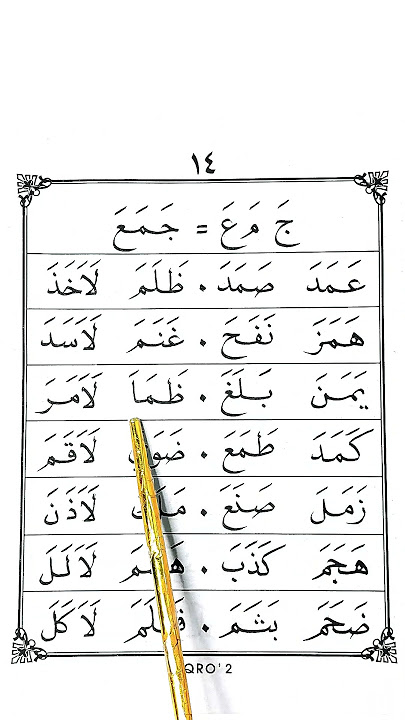 ١٤
جَ مَ عَ = جَمَعَ
عَمَدَ صَمَدَ . ظَلَمَ لَاَخَذَ
هَمَزَ نَفَحَ . غَنَمَ لَاَسَدَ
يَمَنَ بَلَغَ . ظَمَاَ لَاَمَرَ
كَمَدَ طَمَعَ . لَاَقَمَ
زَمَلَ صَنَعَ . لَاَذَنَ
هَجَمَ كَذَبَ . لَاَلَلَ
ضَخَمَ بَشَمَ . لَاَكَلَ
QRO' 2